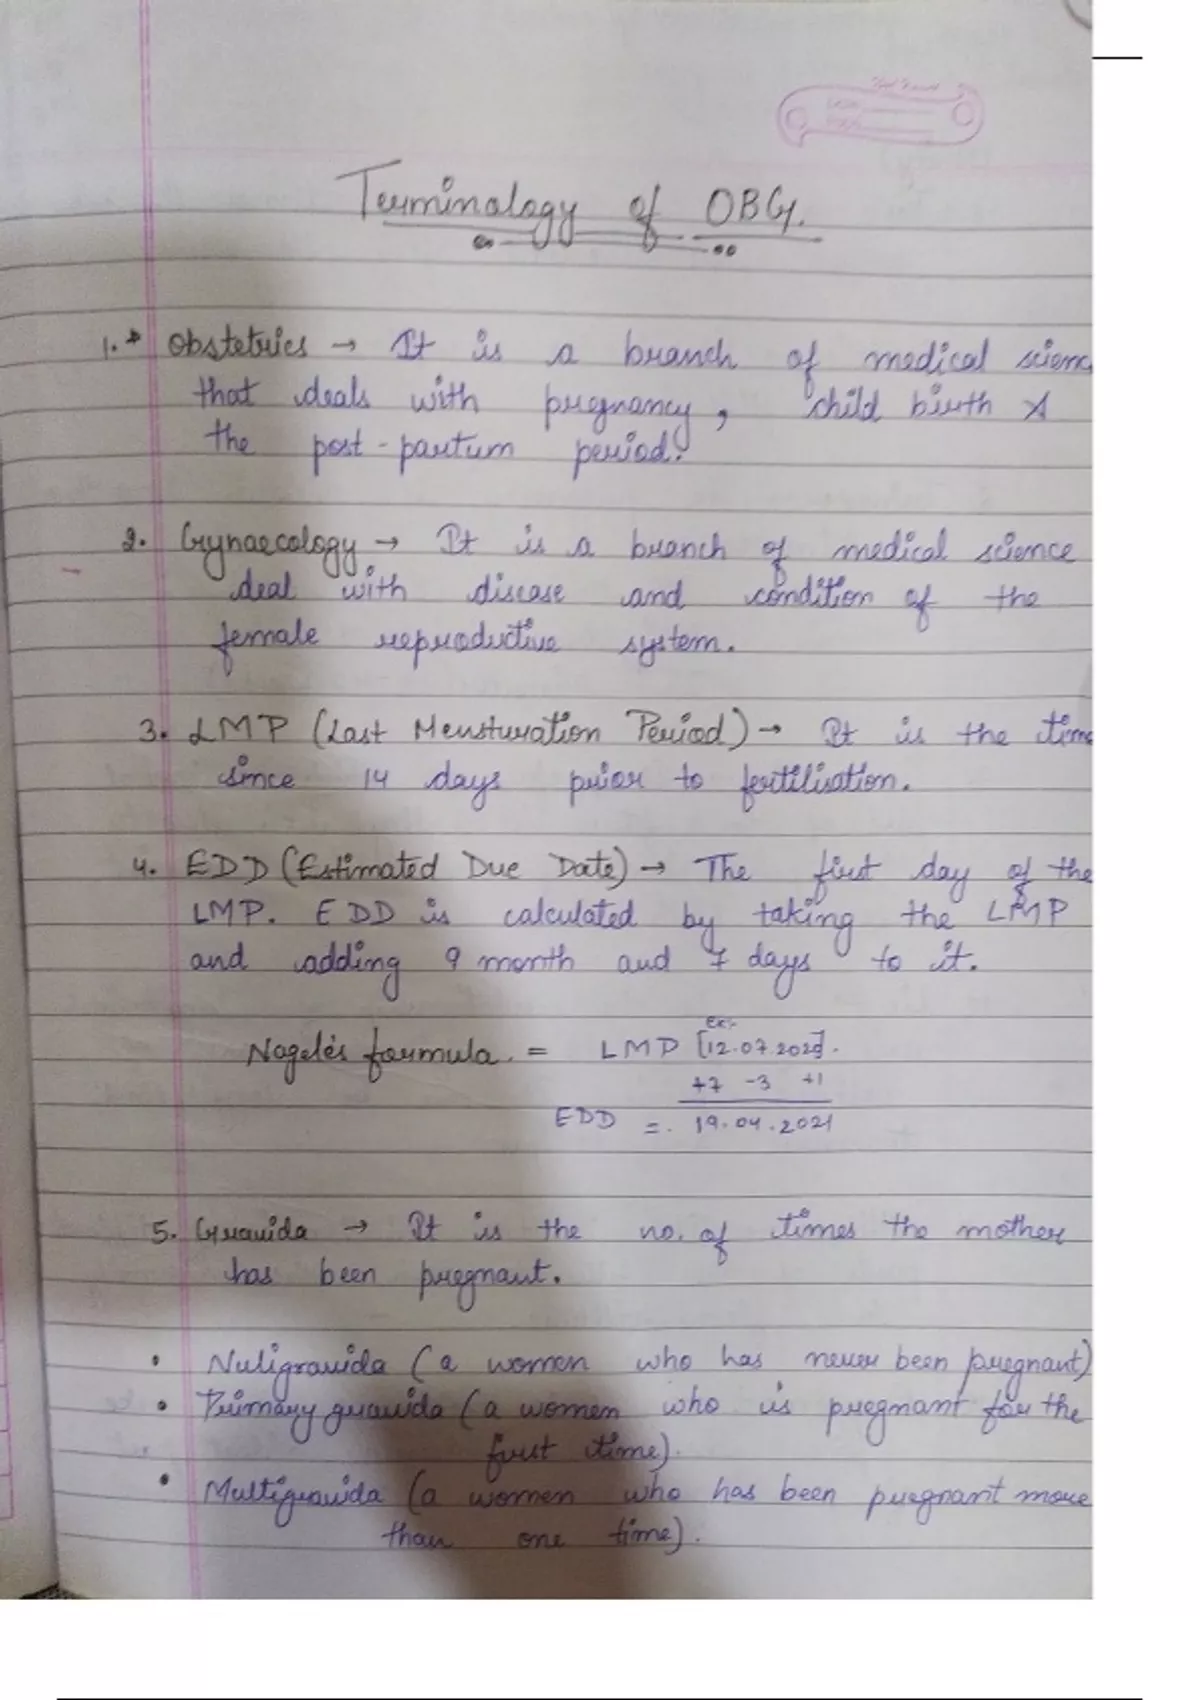 Terminology of OBG.
1. Obstetrics → It is a branch of medical scienc
that deals with pregnancy, child birth &
the post-partum period.
2. Gynaecology → It is a branch of medical science
deal with disease and condition of the
female reproductive system.
3. LMP (Last Mensturation Period) → It is the time
since 14 days prior to fertilisation.
4. EDD (Estimated Due Date) → The first day of the
LMP. EDD is calculated by taking the LMP
and adding 9 month and 7 days to it.
ex:-
Nagele's formula. = LMP [12.07.2020].
+7 -3 +1
EDD =. 19.04.2021
5. Gravida → It is the no. of times the mother
has been pregnant.
• Nuligravida (a women who has never been pregnant)
• Primary gravida (a women who is pregnant for the
first time).
• Multigravida (a women who has been pregnant more
than one time).